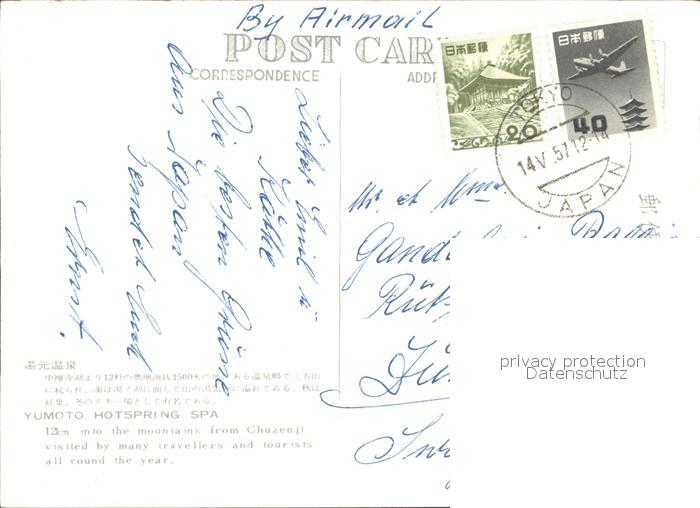 By Airmail
POST CAR
CORRESPONDENCE
ADDR
日本郵便
20
日本郵便
40
TOKYO
14.V.57.12-14
JAPAN
Lieber Emil u
Käthe
Die besten Grüsse
Aus Japan
sendet Euch
Ernst.
Mr et Mme
Gand
Rüt
郵便
privacy protection
Datenschutz
湯元温泉
中禅寺湖より12粁の奥地海抜1500米の地にある温泉郷で三方山
に続られ、南は湯ノ湖に面して山の湯気分に溢れてゐる。秋は
紅葉、冬のスキー場として有名である。
YUMOTO HOTSPRING SPA
12km into the mountains from Chuzenji
visited by many travellers and tourists
all round the year.